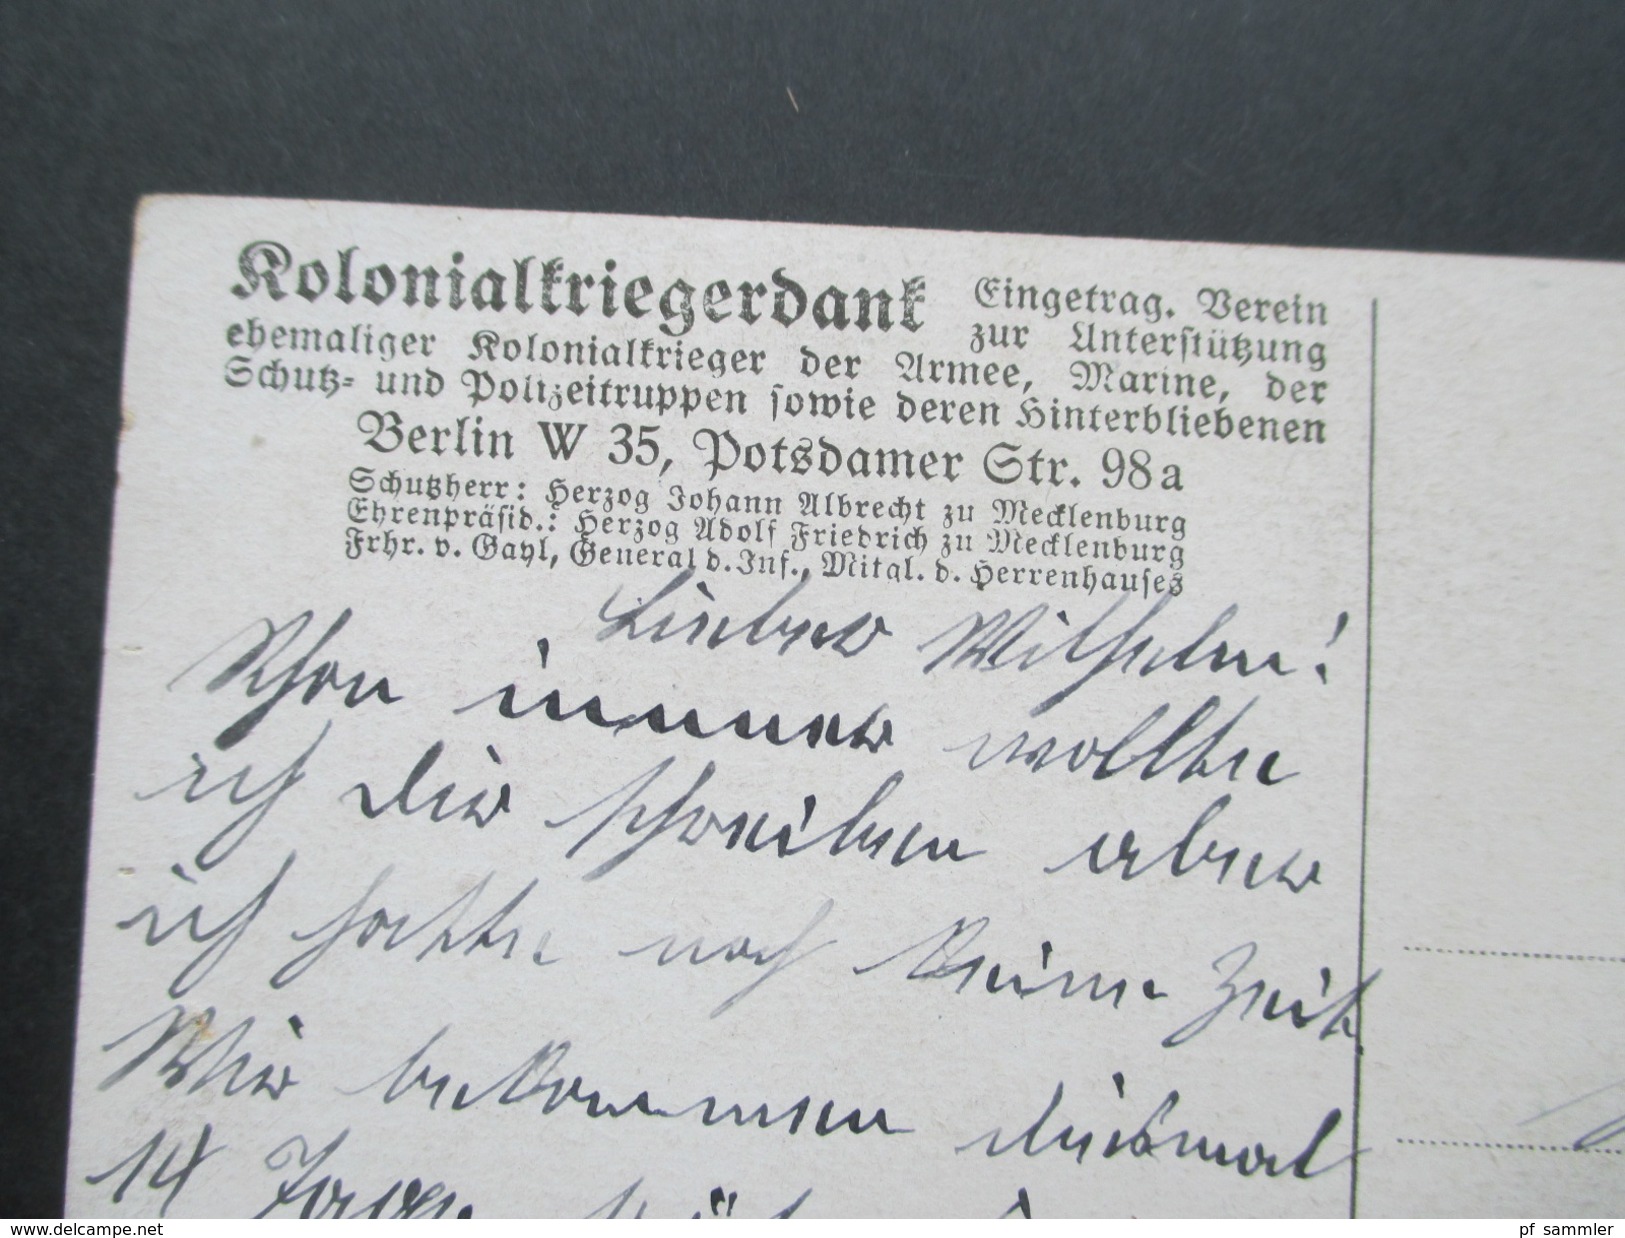 Kolonialkriegerdank Eingetrag. Verein
zur Unterstützung
ehemaliger Kolonialkrieger der Armee, Marine, der
Schutz- und Polizeitruppen sowie deren Hinterbliebenen
Berlin W 35, Potsdamer Str. 98a
Schutzherr: Herzog Johann Albrecht zu Mecklenburg
Ehrenpräsid.: Herzog Adolf Friedrich zu Mecklenburg
Frhr. v. Gayl, General d. Inf., Mitgl. d. Herrenhauses
Lieber Wilhelm!
Schon immer wollte
ich dir schreiben aber
ich hatte noch keine Zeit
Wir bekommen diesmal
14 Tage
www.delcampe.net
pf_sammler